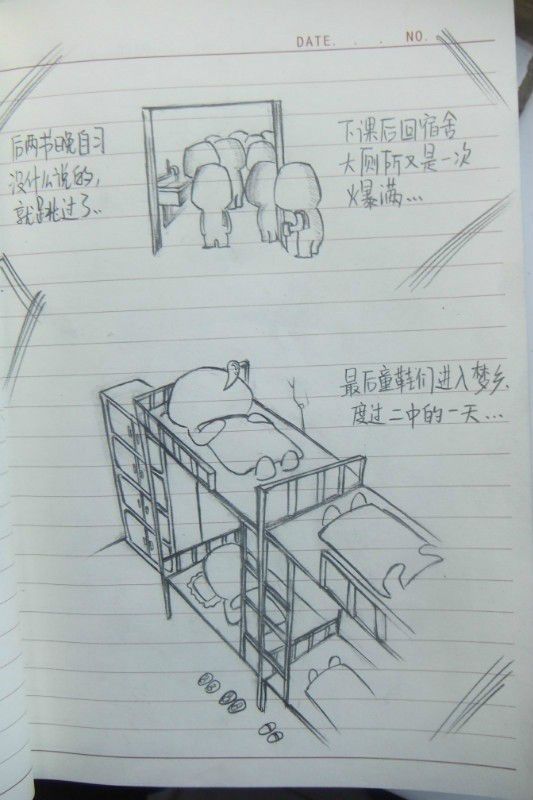 DATE. . . NO.
后两节晚自习
没什么说的,
就跳过了..
下课后回宿舍
大厕所又是一次
爆满...
最后童鞋们进入梦乡.
度过二中的一天...